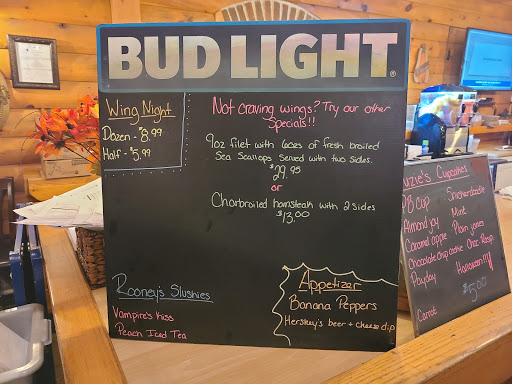 BUD LIGHT
Wing Night
Dozen - $8.99
Half - $5.99
Not craving wings? Try our other
Specials!!
9oz filet with 6ozs of fresh broiled
Sea Scallops Served with two sides.
$29.95
or
Charbroiled hamsteak with 2 sides
$13.00
Rooney's Slushies
Vampire's Kiss
Peach Iced Tea
Appetizer
Banana Peppers
Hershey's beer + cheese dip
uzie's Cupcakes
PB cup Snickerdoodle
Almond joy Mint
Caramel apple Plain jones
Chocolate chip cookie Choc. Rasp.
Payday Halloween!!!
Carrot $5.00